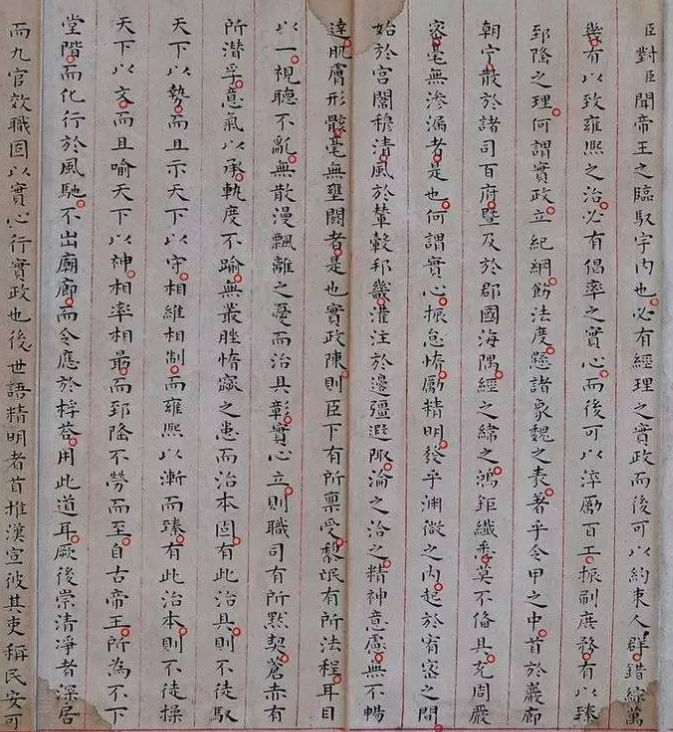 臣對臣聞帝王之臨馭宇內也必有經理之實政而後可以約束人群錯綜萬
幾有以致雍熙之治必有倡率之實心而後可以淬勵百工振刷庶務有以臻
郅隆之理何謂實政立紀綱飭法度懸諸象魏之表著乎令甲之中首於巖廊
朝宁散於諸司百府暨及於郡國海隅經之緯之鴻鉅纖悉莫不備具充周嚴
密毫無滲漏者是也何謂實心振怠惰勵精明發乎淵微之內起於宥密之間
始於宮闈穆清風於輦轂邦畿灌注於邊疆遐陬淪之洽之精神意慮無不暢
達肌膚形骸毫無壅閼者是也實政陳則臣下有所稟受黎氓有所法程耳目
以一視聽不亂無散漫飄離之憂而治具彰實心立則職司有所默契蒼赤有
所潛孚意氣以承軌度不踰無叢脞惰窳之患而治本固有此治具則不徒馭
天下以勢而且示天下以守相維相制而雍熙以漸而臻有此治本則不徒操
天下以文而且喻天下以神相率相最而郅隆不勞而至自古帝王所為不下
堂階而化行於風馳不出廟廊而令應於桴荅用此道耳厥後崇清淨者深居
而九官效職固以實心行實政也後世語精明者首推漢宣彼其吏稱民安可